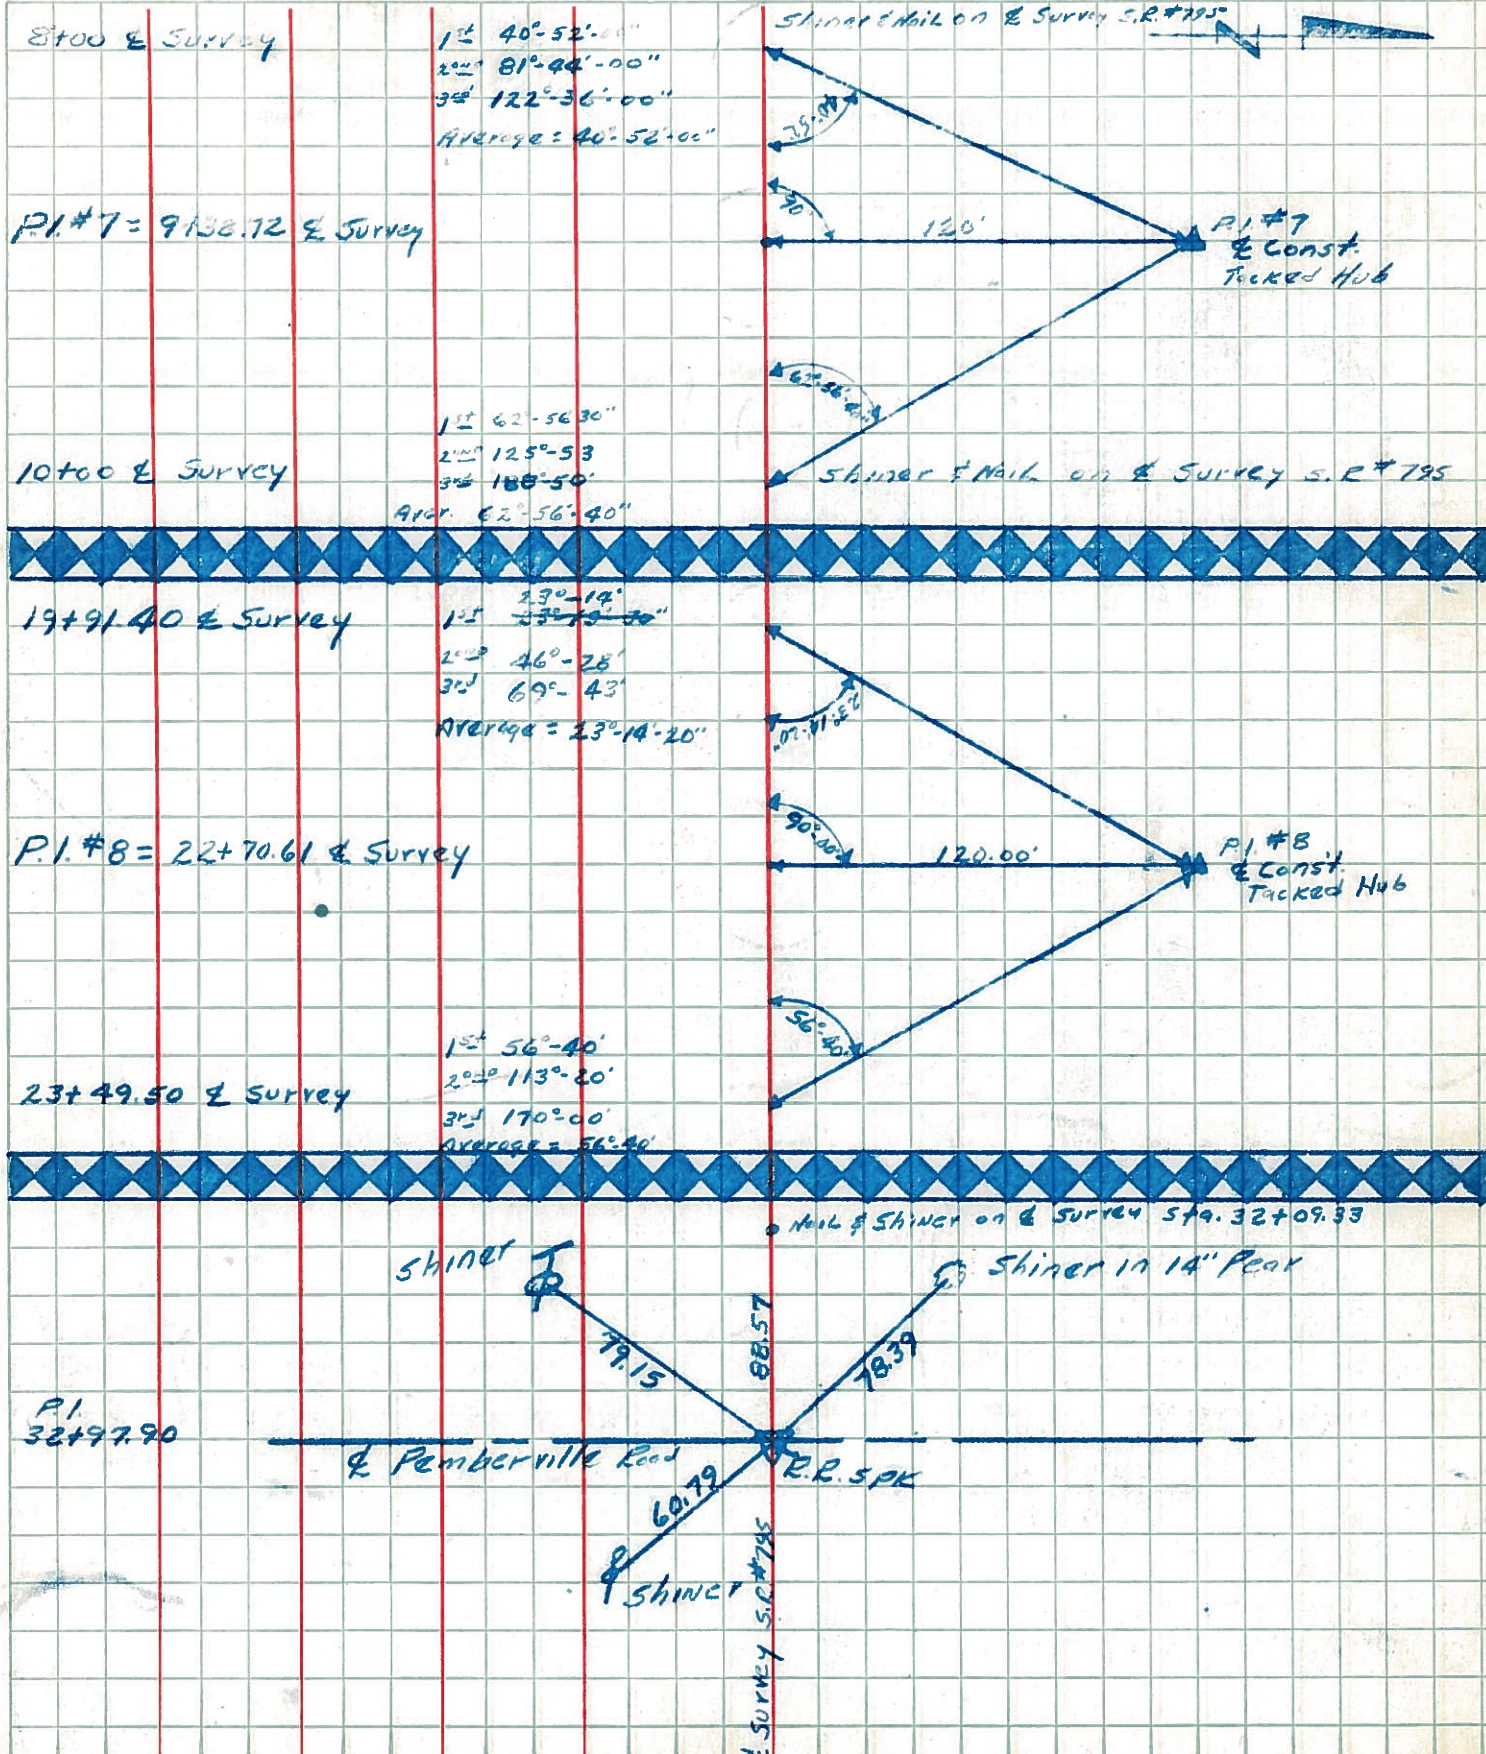 8+00 ℄ Survey
1st 40°-52'-00"
2nd 81°-44'-00"
3rd 122°-36'-00"
Average = 40°-52'-00"
Shiner & Nail on ℄ Survey S.R. #795
N
40°-52'
P.I. #7 = 9+38.72 ℄ Survey
90°
120'
P.I. #7
℄ Const.
Tacked Hub
62°-56'-40"
1st 62°-56'30"
2nd 125°-53
3rd 188°-50'
Aver. 62°-56'-40"
10+00 ℄ Survey
Shiner & Nail on ℄ Survey S.R #795
19+91.40 ℄ Survey
23°-14'
1st
2nd 46°-28'
3rd 69°-43'
Average = 23°-14'-20"
23°-14'-20"
P.I. #8 = 22+70.61 ℄ Survey
90°-00'
120.00'
P.I. #8
℄ Const.
Tacked Hub
56°-40'
1st 56°-40'
2nd 113°-20'
3rd 170°-00'
Average = 56°-40'
23+49.50 ℄ Survey
Nail & Shiner on ℄ Survey Sta. 32+09.33
Shiner
Shiner in 14" Pear
79.15
88.57
78.39
P.I.
32+97.90
℄ Pemberville Road
R.R. SPK
60.79
Shiner
℄ Survey S.R. #795